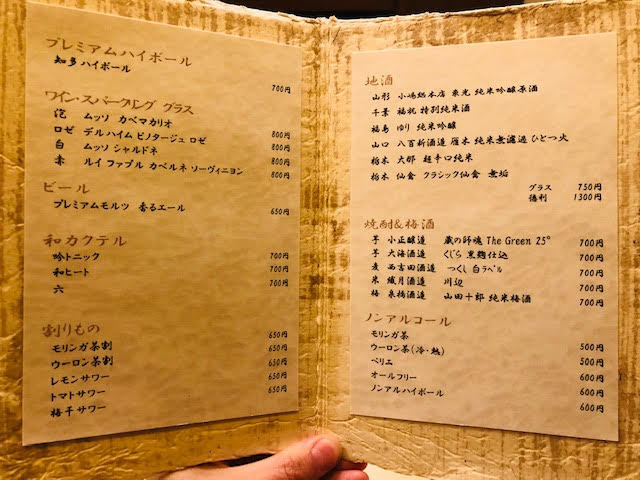 プレミアムハイボール
知多ハイボール
700円
ワイン・スパークリング グラス
泡 ムッソ カベマカリオ
ロゼ デルハイム ピノタージュ ロゼ 800円
白 ムッソ シャルドネ 800円
赤 ルイ ファブル カベルネ ソーヴィニヨン 800円
800円
ビール
プレミアムモルツ 香るエール 650円
和カクテル
吟トニック 700円
和ヒート 700円
六 700円
割りもの
モリンガ茶割 650円
ウーロン茶割 650円
レモンサワー 650円
トマトサワー 650円
梅干サワー 650円
地酒
山形 小嶋総本店 東光 純米吟醸原酒
千葉 福祝 特別純米酒
福島 ゆり 純米吟醸
山口 八百新酒造 雁木 純米無濾過 ひとつ火
栃木 大那 超辛口純米
栃木 仙禽 クラシック仙禽 無垢
グラス 750円
徳利 1300円
焼酎&梅酒
芋 小正醸造 蔵の師魂 The Green 25° 700円
芋 大海酒造 くじら 黒麹仕込 700円
麦 西吉田酒造 つくし 白ラベル 700円
米 繊月酒造 川辺 700円
梅 泉橋酒造 山田十郎 純米梅酒 700円
ノンアルコール
モリンガ茶
ウーロン茶(冷・熱) 500円
ペリエ 500円
オールフリー 600円
ノンアルハイボール 600円
600円